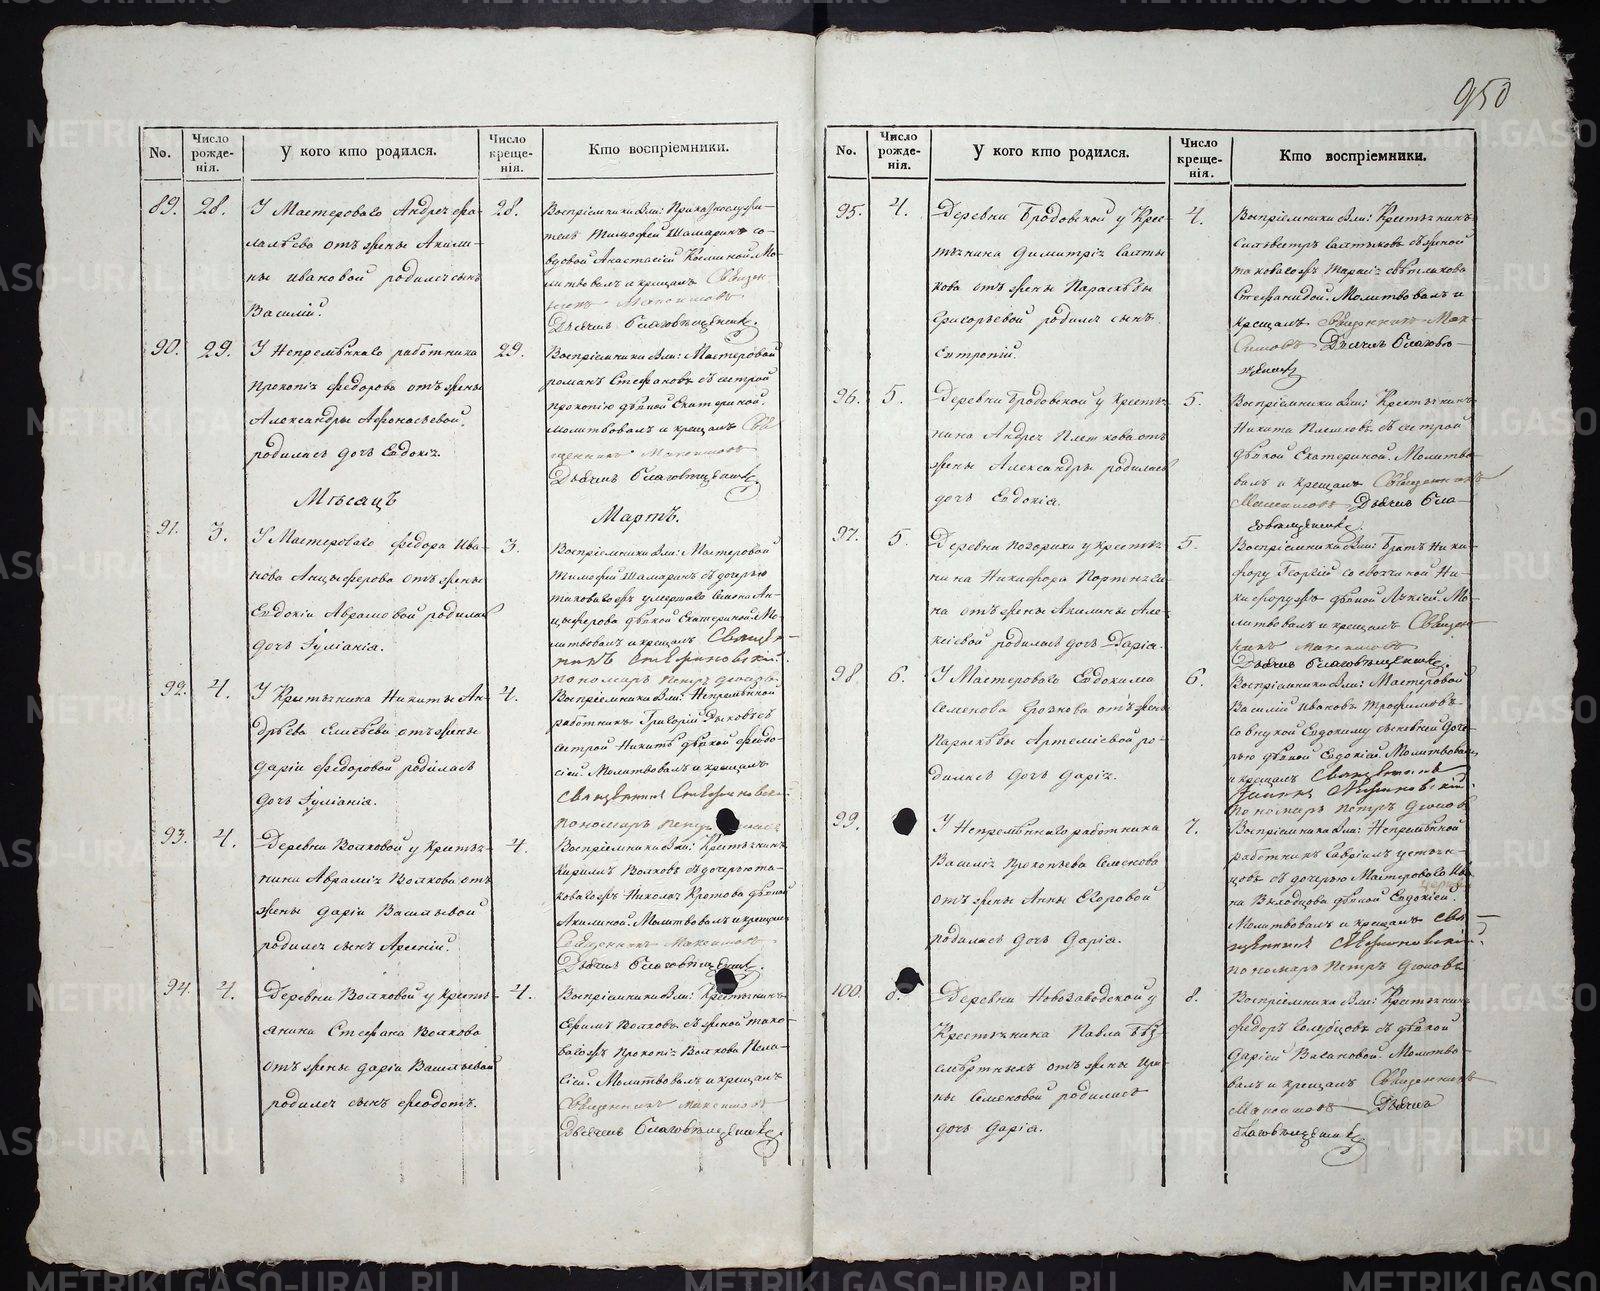 950
No.
Число рожде-нія.
У кого кто родился.
Число креще-нія.
Кто воспріемники.
89. 28.
У Мастероваго Андрея
отъ жены Акили-
ны Ивановой родился сынъ
Василій.
28.
Воспріемники были: Приказнослужи-
тель Тимофей Шамаринъ со
вдовой Анастасіей Козминой Мо-
литвовалъ и крещалъ Священ-
никъ Максимовъ
Дьячекъ Благовѣщенскій.
90. 29.
У Непремѣннаго работника
Прокопія Федорова отъ жены
Александры Афонасьевой.
родилась дочь Евдокія.
29.
Воспріемники были: Мастеровой
Романъ Стефановъ съ сестрой
Прокопію дѣвкой Екатериной.
Молитвовалъ и крещалъ Свя
щенникъ Максимовъ
Дьячекъ Благовѣщенскій.
Мѣсяцъ Мартъ.
91. 3.
У Мастероваго Федора Ива-
нова Анцыферова отъ жены
Евдокіи Аврамовой родилась
дочь Іуліанія.
3.
Воспріемники были: Мастеровой
Тимофей Шамаринъ съ дочерью
таковагожъ умершаго Семена Ан-
цыферова дѣвкой Екатериной. Мо-
литвовалъ и крещалъ Священ-
никъ
пономарь Петръ
92. 4.
У Крестьянина Никиты Ан-
дрѣева Елисѣева отъ жены
Даріи Федоровой родилась
дочь Іуліанія.
4.
Воспріемники были: Непремѣнной
работникъ Григорій съ
сестрой Никиты дѣвкой Феодо-
сіей. Молитвовалъ и крещалъ
Священникъ
пономарь Петръ
93. 4.
Деревни Волковой у Крестья-
нина Аврамія Волкова отъ
жены Даріи Васильевой
родился сынъ Арсеній.
4.
Воспріемники были: Крестьянинъ
Кирилъ Волковъ съ дочерью та-
ковагожъ Николая Кротова дѣвкой
Акилиной. Молитвовалъ и крещалъ
Священникъ Максимовъ
Дьячекъ Благовѣщенскій.
94. 4.
Деревни Волковой у Кресть-
янина Стефана Волкова
отъ жены Даріи Васильевой
родился сынъ Феодотъ.
4.
Воспріемники были: Крестьянинъ
Ефимъ Волковъ съ женой тако-
вагожъ Прокопія Волкова Пела-
гіей. Молитвовалъ и крещалъ
Священникъ Максимовъ
Дьячекъ Благовѣщенскій.
No.
Число рожде-нія.
У кого кто родился.
Число креще-нія.
Кто воспріемники.
95. 4.
Деревни Бродовской у Крес-
тьянина Димитрія Салты
кова отъ жены Параскѣвы
Григорьевой родился сынъ
Евтропій.
4.
Воспріемники были: Крестьянинъ
Сильвестръ Салтыковъ съ женой
таковагожъ Тарасія
Стефанидой. Молитвовалъ и
крещалъ Священникъ Мак-
симовъ Дьячекъ Благовѣ-
щенскій
96. 5.
Деревни Бродовской у Крестья-
нина Андрея Плешкова отъ
жены Александры родилась
дочь Евдокія.
5.
Воспріемники были: Крестьянинъ
Никита Плешковъ съ сестрой
дѣвкой Екатериной. Молитво-
валъ и крещалъ Священникъ
Максимовъ Дьячекъ Бла-
говѣщенскій.
97. 5.
Деревни Позарихи у Крестья-
нина Никифора Портнягина
отъ жены Акилины Але-
ксіевой родилась дочь Дарія.
5.
Воспріемники были: Братъ Ники-
фору Георгій со своячиной Ни-
кифоружъ дѣвкой Лукіей. Мо-
литвовалъ и крещалъ Священ-
никъ Максимовъ
Дьячекъ Благовѣщенскій.
98. 6.
У Мастероваго Евдокима
Семенова Грознова отъ жены
Параскѣвы Артеміевой ро-
дилась дочь Дарія.
6.
Воспріемники были: Мастеровой
Василій Ивановъ Трофимовъ
со внукой Евдокиму сыновней доче-
рью дѣвкой Евдокіей. Молитвовалъ
и крещалъ Священникъ
пономарь Петръ
99.
У Непремѣннаго работника
Василія Прокопьева Семенова
отъ жены Анны Егоровой
родилась дочь Дарія.
7.
Воспріемники были: Непремѣнной
работникъ Гавріилъ
съ дочерью Мастероваго Ива
на дѣвкой Евдокіей.
Молитвовалъ и крещалъ Свя-
щенникъ
пономарь Петръ
100. 8.
Деревни Новозаводской у
Крестьянина Павла Без-
смертныхъ отъ жены Ири-
ны Семеновой родилась
дочь Дарія.
8.
Воспріемники были: Крестьянинъ
Федоръ Голубцовъ съ дѣвкой
Даріей. Молитво-
валъ и крещалъ Священникъ
Максимовъ Дьячекъ
Благовѣщенскій
METRIKI.GASO-URAL.RU